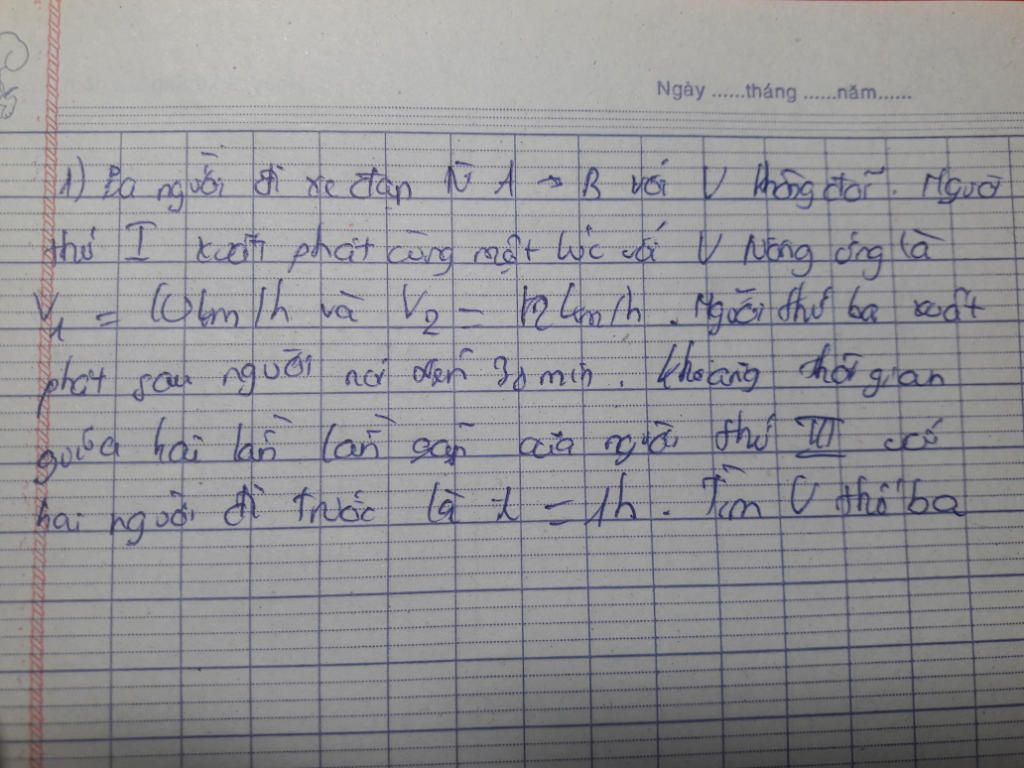 Ngày ......tháng ......năm......
1) Ba người đi xe đạp từ A → B với V không đổi. Người
thứ I xuất phát cùng một lúc với V tương ứng là
V1 = 10km/h và V2 = 12km/h. Người thứ ba xuất
phát sau người nói 30 min. khoảng thời gian
giữa hai lần lần gặp của người thứ III với
hai người đi trước là t = 1h. Tìm V thứ ba